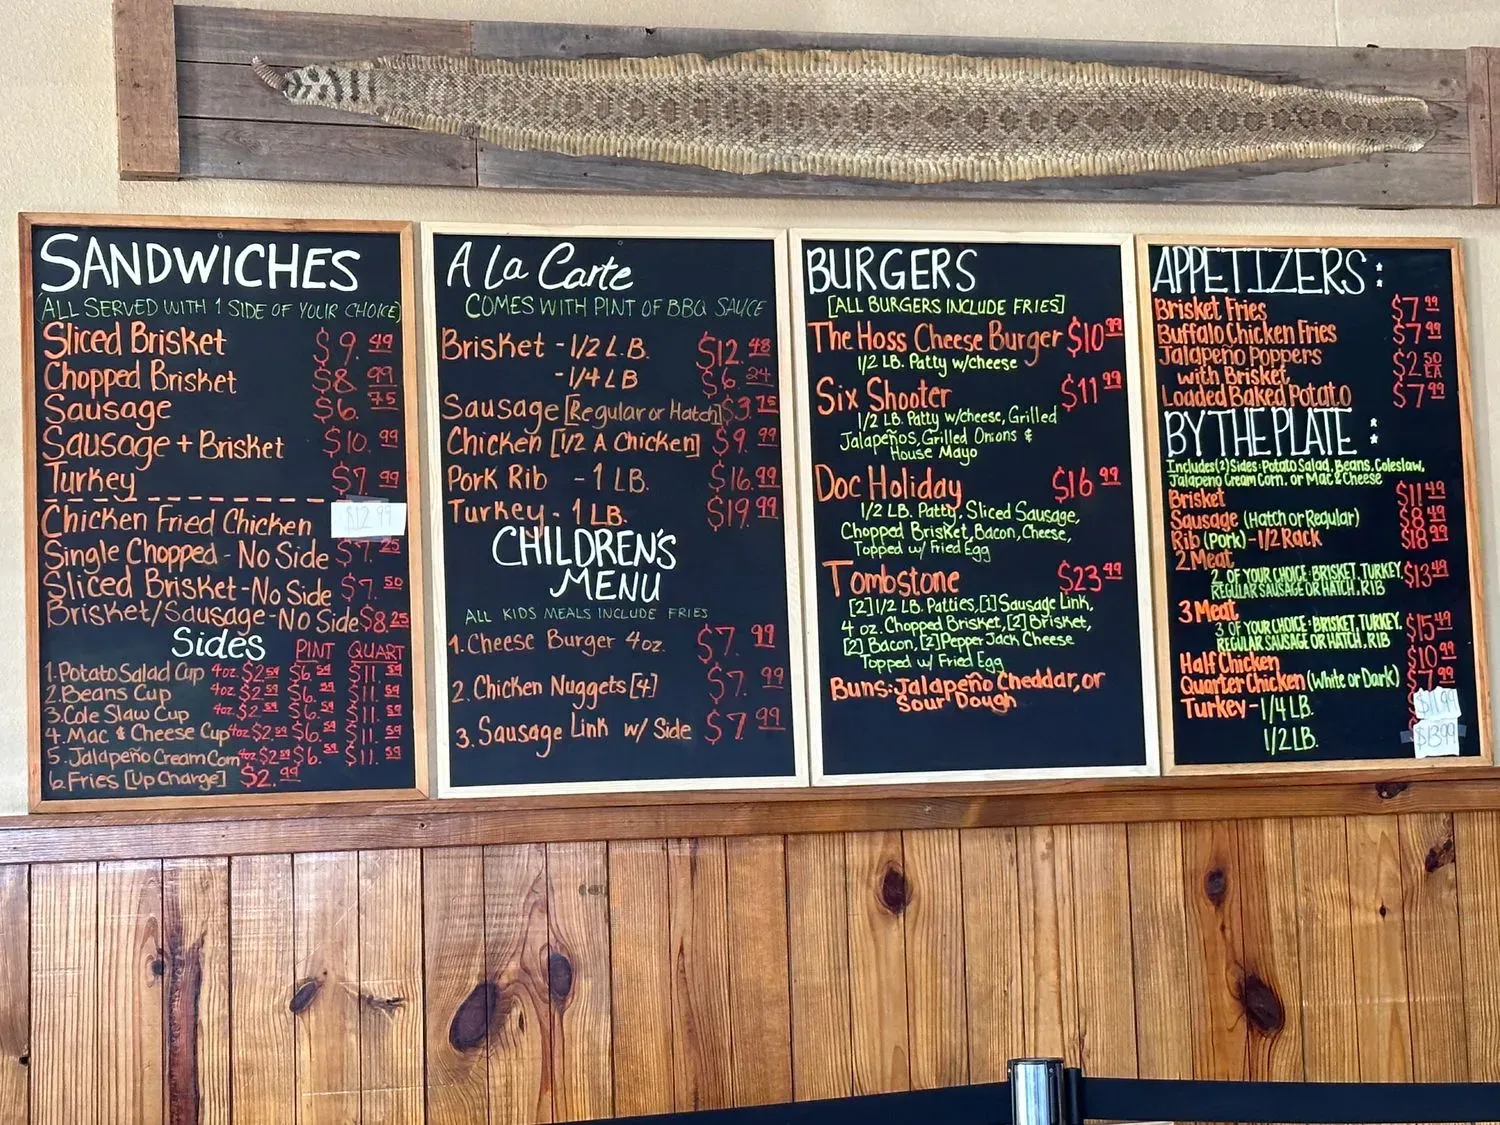 SANDWICHES
(ALL SERVED WITH 1 SIDE OF YOUR CHOICE)
Sliced Brisket $9.49
Chopped Brisket $8.99
Sausage $6.75
Sausage + Brisket $10.99
Turkey $7.99
Chicken Fried Chicken $12.99
Single Chopped - No Side $7.25
Sliced Brisket - No Side $7.50
Brisket/Sausage - No Side $8.25
Sides PINT QUART
1. Potato Salad Cup 4oz. $2.59 $6.59 $11.59
2. Beans Cup 4oz. $2.59 $6.59 $11.59
3. Cole Slaw Cup 4oz. $2.59 $6.59 $11.59
4. Mac & Cheese Cup 4oz. $2.59 $6.59 $11.59
5. Jalapeño Cream Corn 4oz. $2.59 $6.59 $11.59
6. Fries [Up Charge] $2.99
A La Carte
COMES WITH PINT OF BBQ SAUCE
Brisket - 1/2 L.B. $12.48
- 1/4 LB $6.24
Sausage [Regular or Hatch] $3.75
Chicken [1/2 A Chicken] $9.99
Pork Rib - 1 LB. $16.99
Turkey - 1 LB. $19.99
CHILDREN'S
MENU
ALL KIDS MEALS INCLUDE FRIES
1. Cheese Burger 4oz. $7.99
2. Chicken Nuggets [4] $7.99
3. Sausage Link w/ Side $7.99
BURGERS
[ALL BURGERS INCLUDE FRIES]
The Hoss Cheese Burger $10.99
1/2 LB. Patty w/cheese
Six Shooter $11.99
1/2 LB. Patty w/cheese, Grilled
Jalapeños, Grilled Onions &
House Mayo
Doc Holiday $16.99
1/2 LB. Patty, Sliced Sausage,
Chopped Brisket, Bacon, Cheese,
Topped w/ Fried Egg
Tombstone $23.49
[2] 1/2 LB. Patties, [1] Sausage Link,
4 oz. Chopped Brisket, [2] Brisket,
[2] Bacon, [2] Pepper Jack Cheese
Topped w/ Fried Egg
Buns: Jalapeño Cheddar, or
Sour Dough
APPETIZERS:
Brisket Fries $7.99
Buffalo Chicken Fries $7.99
Jalapeño Poppers $2.50
with Brisket EA
Loaded Baked Potato $7.99
BY THE PLATE:
Includes (2) Sides: Potato Salad, Beans, Coleslaw,
Jalapeno Cream Corn, or Mac & Cheese
Brisket $11.49
Sausage (Hatch or Regular) $8.49
Rib (Pork) - 1/2 Rack $18.99
2 Meat
2 OF YOUR CHOICE: BRISKET, TURKEY, $13.49
REGULAR SAUSAGE OR HATCH, RIB
3 Meat
3 OF YOUR CHOICE: BRISKET, TURKEY, $15.49
REGULAR SAUSAGE OR HATCH, RIB
Half Chicken $10.99
Quarter Chicken (White or Dark) $7.99
Turkey - 1/4 LB. $11.99
1/2 LB. $13.99